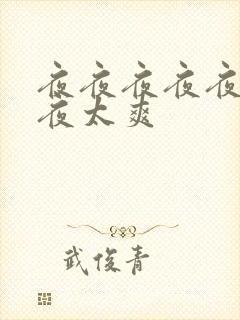 夜夜夜夜夜
夜太爽
武俊青